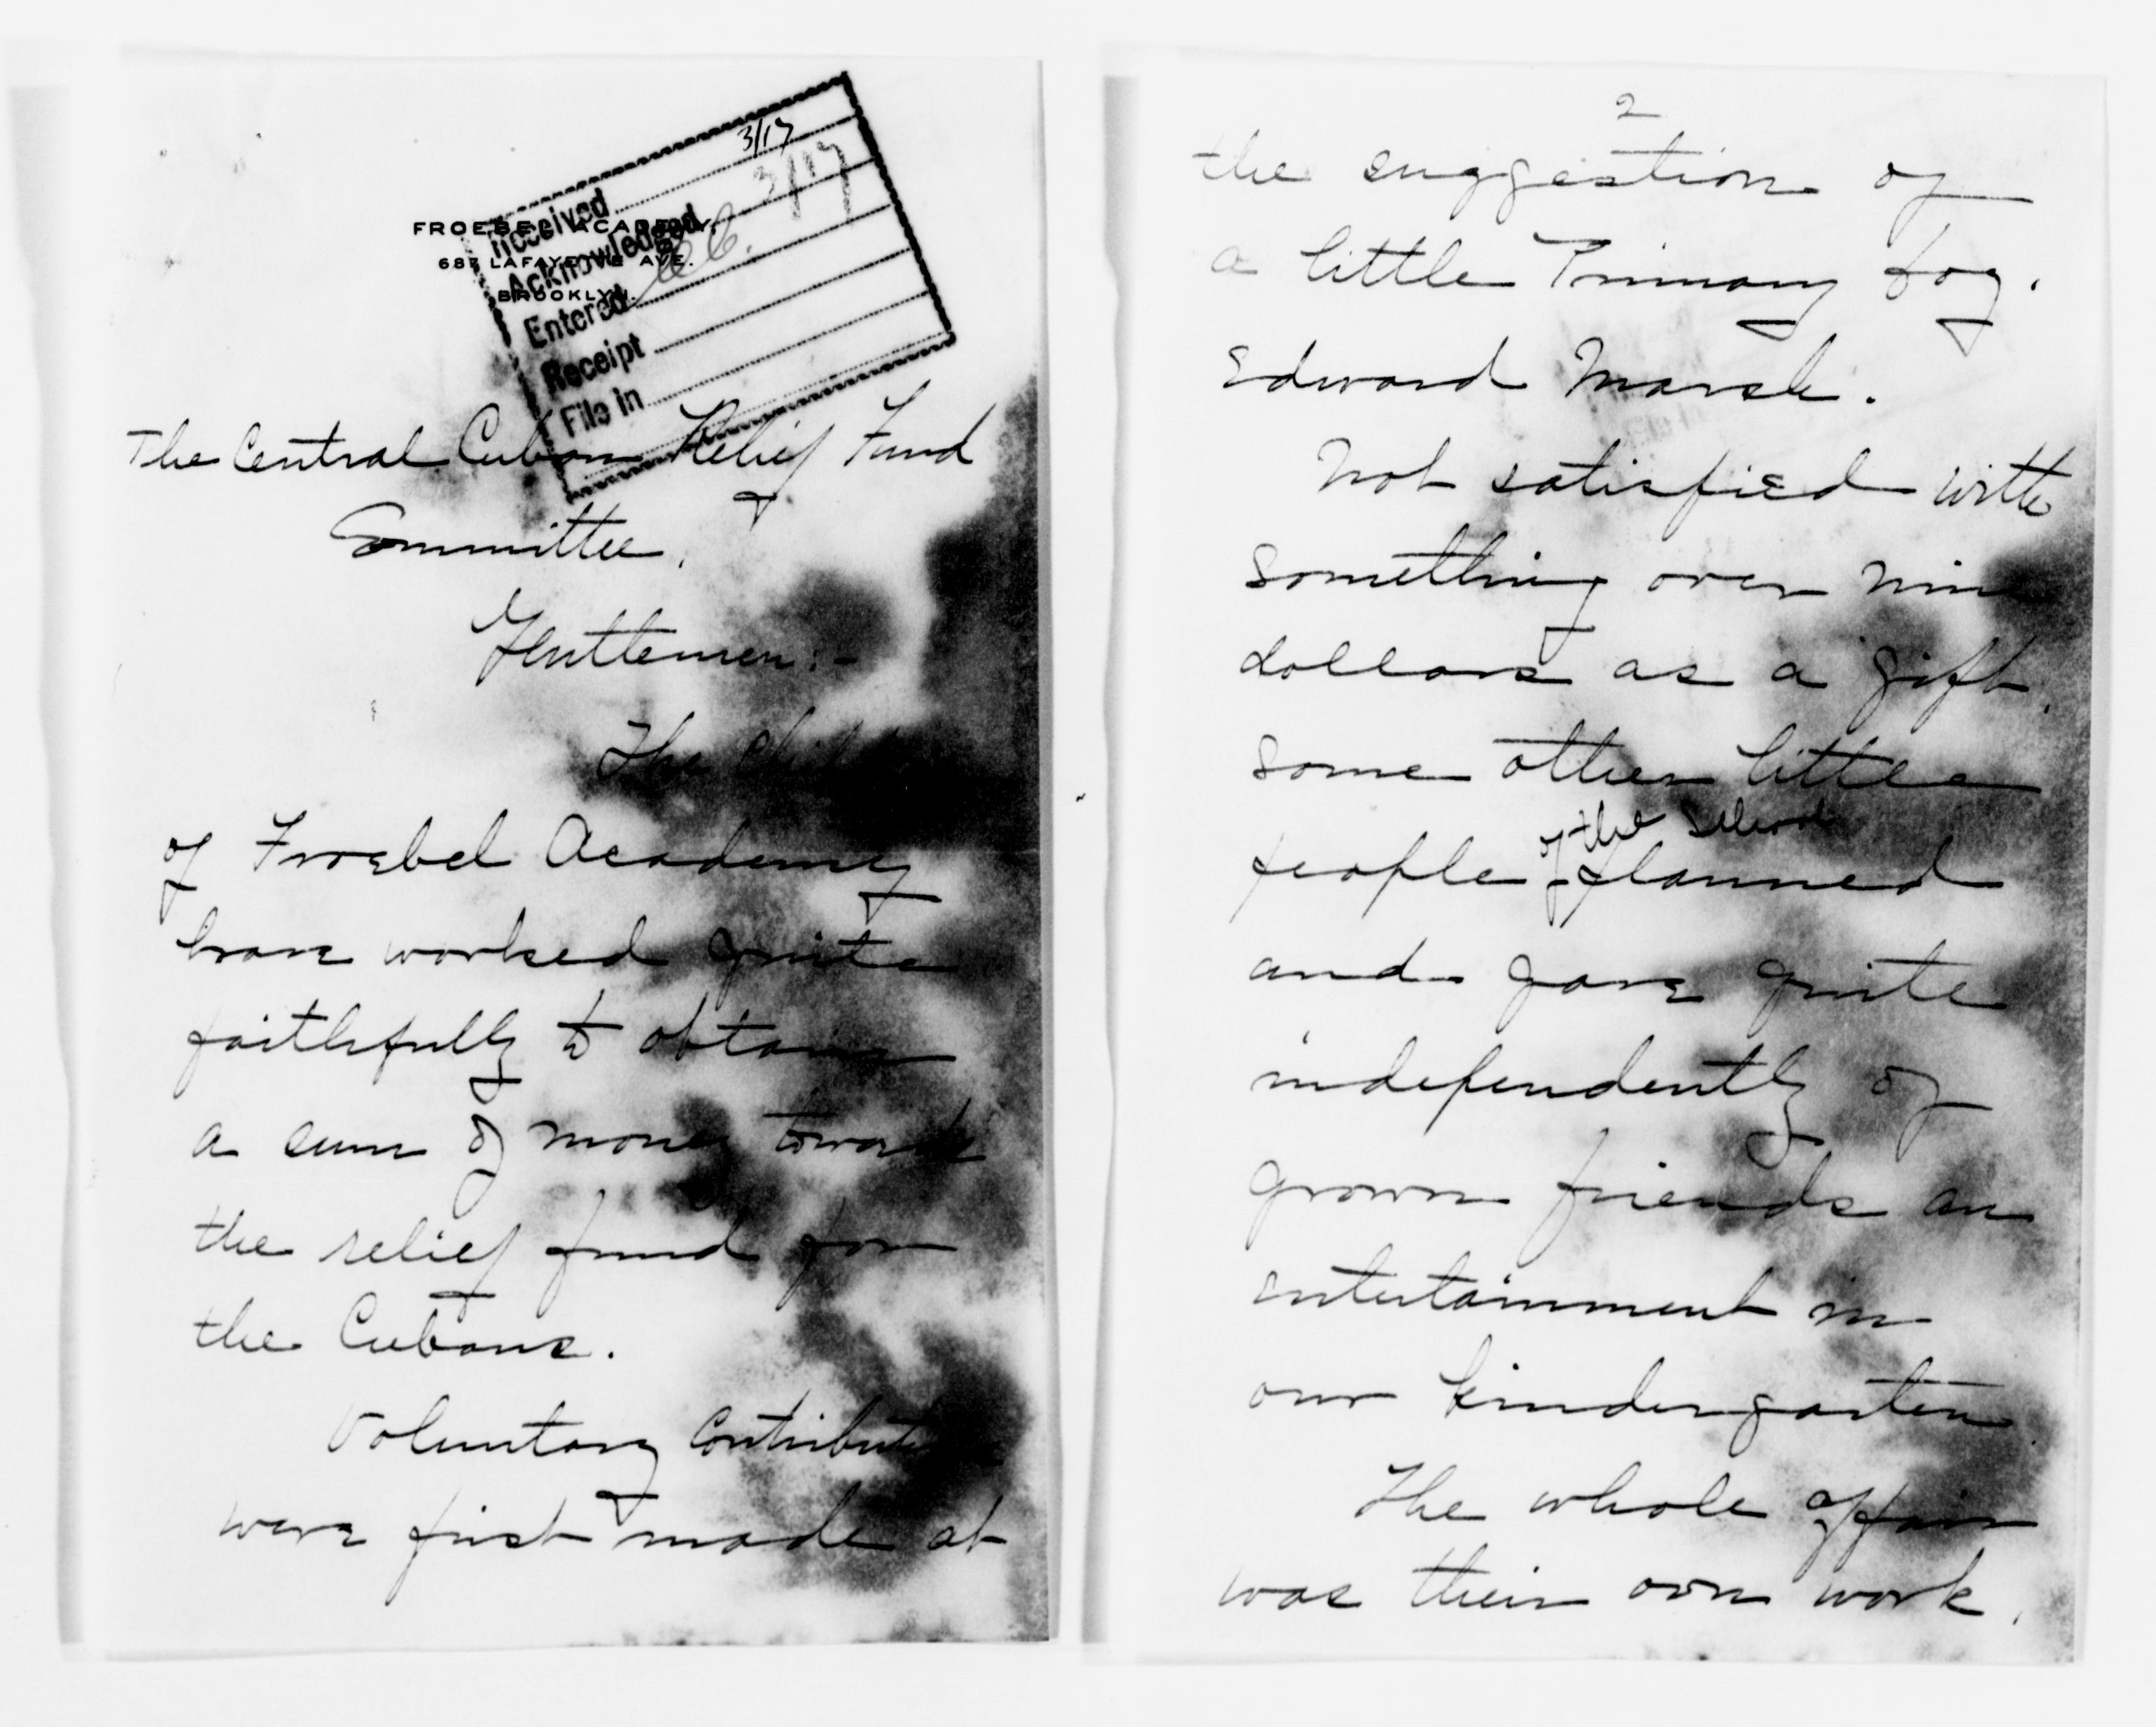 FROEBEL ACADEMY,
687 LAFAYETTE AVE.
BROOKLYN.
Received 3/17
Acknowledged 3/17
Entered
Receipt
File in
The Central Cuban Relief Fund
Committee,
Gentlemen:-
The
of Froebel Academy
have worked quite
faithfully to obtain
a sum of money toward
the relief fund for
the Cubans.
Voluntary
were first made at
2
the suggestion of
a little Primary boy.
Edward Marsh.
Not satisfied with
something over nine
dollars as a gift,
some other little
of the school
people planned
and gave quite
independently of
grown friends an
entertainment in
our kindergarten.
The whole affair
was their own work.